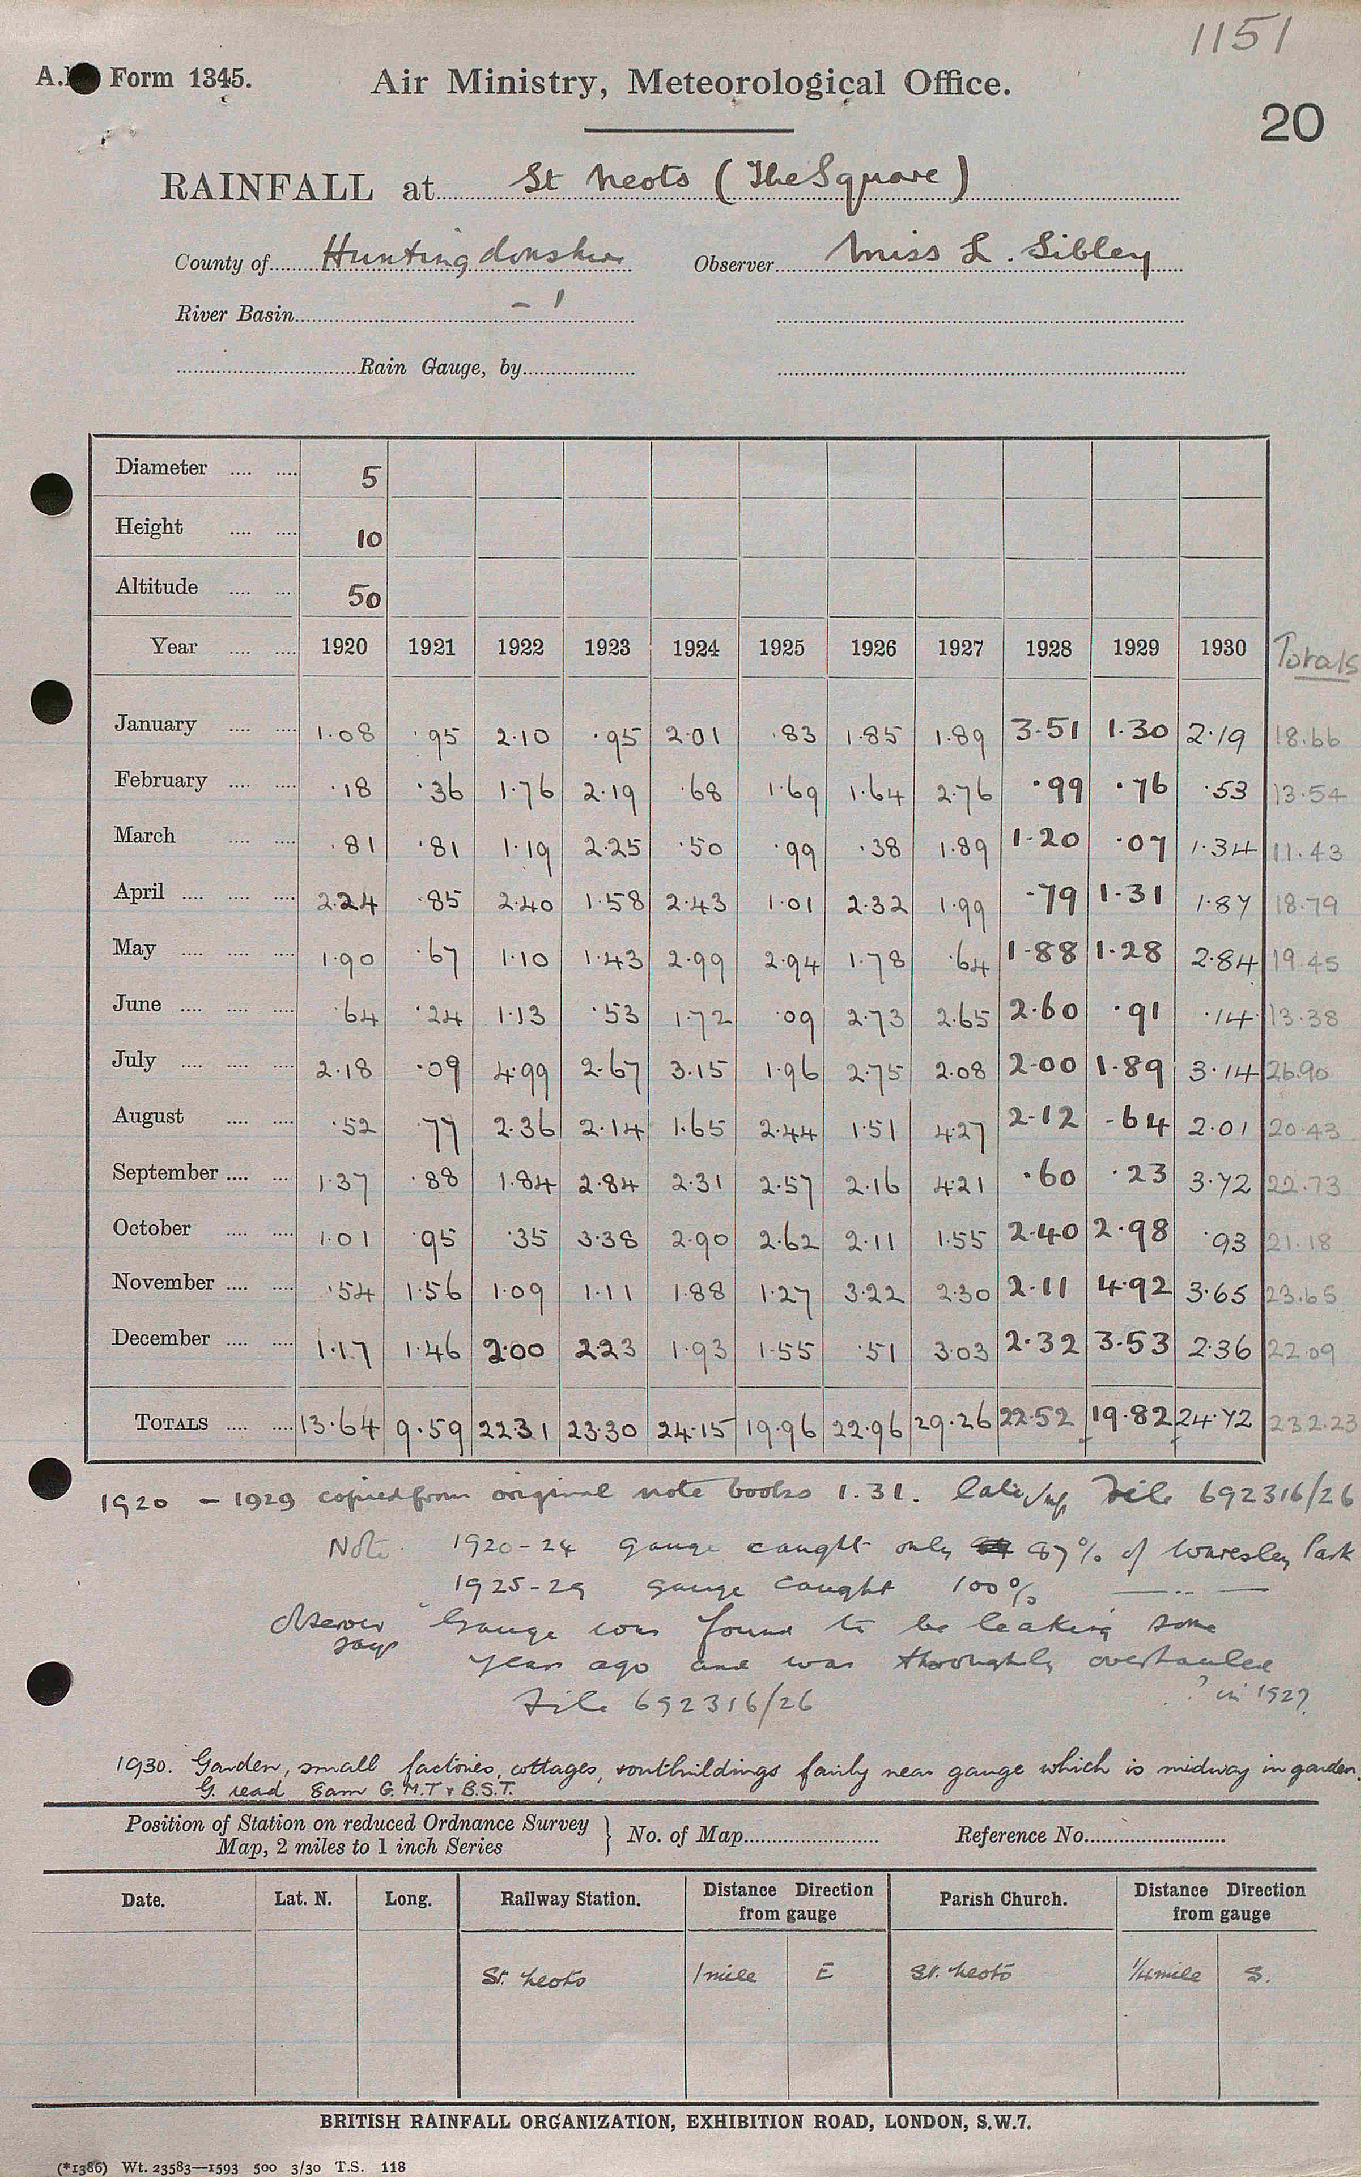 1151
A.M. Form 1345. Air Ministry, Meteorological Office.
20
RAINFALL at St Neots (The Square)
County of Huntingdonshire Observer Miss L. Sibley
River Basin
Rain Gauge, by
Diameter 5
Height 10
Altitude 50
Year 1920 1921 1922 1923 1924 1925 1926 1927 1928 1929 1930 Totals
January 1.08 .95 2.10 .95 2.01 .83 1.85 1.89 3.51 1.30 2.19 18.66
February .18 .36 1.76 2.19 .68 1.69 1.64 2.76 .99 .76 .53 13.54
March .81 .81 1.19 2.25 .50 .99 .38 1.89 1.20 .07 1.34 11.43
April 2.24 .85 2.40 1.58 2.43 1.01 2.32 1.99 .79 1.31 1.87 18.79
May 1.90 .67 1.10 1.43 2.99 2.94 1.78 .64 1.88 1.28 2.84 19.45
June .64 .24 1.13 .53 1.72 .09 2.73 2.65 2.60 .91 .14 13.38
July 2.18 .09 4.99 2.67 3.15 1.96 2.75 2.08 2.00 1.89 3.14 26.90
August .52 .77 2.36 2.14 1.65 2.44 1.51 4.27 2.12 .64 2.01 20.43
September 1.37 .88 1.84 2.84 2.31 2.57 2.16 4.21 .60 .23 3.72 22.73
October 1.01 .95 .35 3.38 2.90 2.62 2.11 1.55 2.40 2.98 .93 21.18
November .54 1.56 1.09 1.11 1.88 1.27 3.22 2.30 2.11 4.92 3.65 23.65
December 1.17 1.46 2.00 2.23 1.93 1.55 .51 3.03 2.32 3.53 2.36 22.09
TOTALS 13.64 9.59 22.31 23.30 24.15 19.96 22.96 29.26 22.52 19.82 24.72 232.23
1920 - 1929 copied from original note books 1.31. File 692316/26
Note 1920-24 gauge caught only 87% of Waresley Park
1925-29 gauge caught 100% — .. —
Observer says "Gauge was found to be leaking some
years ago and was thoroughly overhauled
File 692316/26 ? in 1927
1930. Garden, small factories, cottages, & outbuildings fairly near gauge which is midway in garden.
G. read 8am G.M.T & B.S.T.
Position of Station on reduced Ordnance Survey
Map, 2 miles to 1 inch Series } No. of Map Reference No.
Date. Lat. N. Long. Railway Station. Distance Direction from gauge Parish Church. Distance Direction from gauge
St. Neots 1 mile E St. Neots 1/4 mile S.
BRITISH RAINFALL ORGANIZATION, EXHIBITION ROAD, LONDON, S.W.7.
(*1386) Wt. 23583—1593 500 3/30 T.S. 118